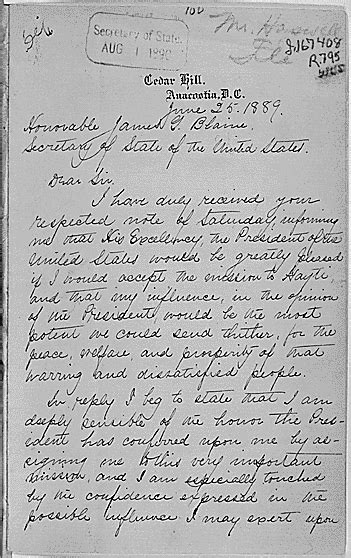 100
Secretary of State,
AUG 1 1890
Mr.
File
R.795
Cedar Hill.
Anacostia, D.C.
June 25. 1889.
Honorable James G. Blaine,
Secretary of State of the United States.
Dear Sir,
I have duly received your
respected note of Saturday, informing
me that His Excellency, the President of the
United States would be greatly pleased
if I would accept the mission to Hayti,
and that my influence, in the opinion
of the President, would be the most
potent we could send thither, for the
peace, welfare, and prosperity of that
warring and dissatisfied people.
In reply I beg to state that I am
deeply sensible of the honor the Pres-
ident has conferred upon me by as-
signing me to this very important
mission, and I am especially touched
by the confidence expressed in the
possible influence I may exert upon